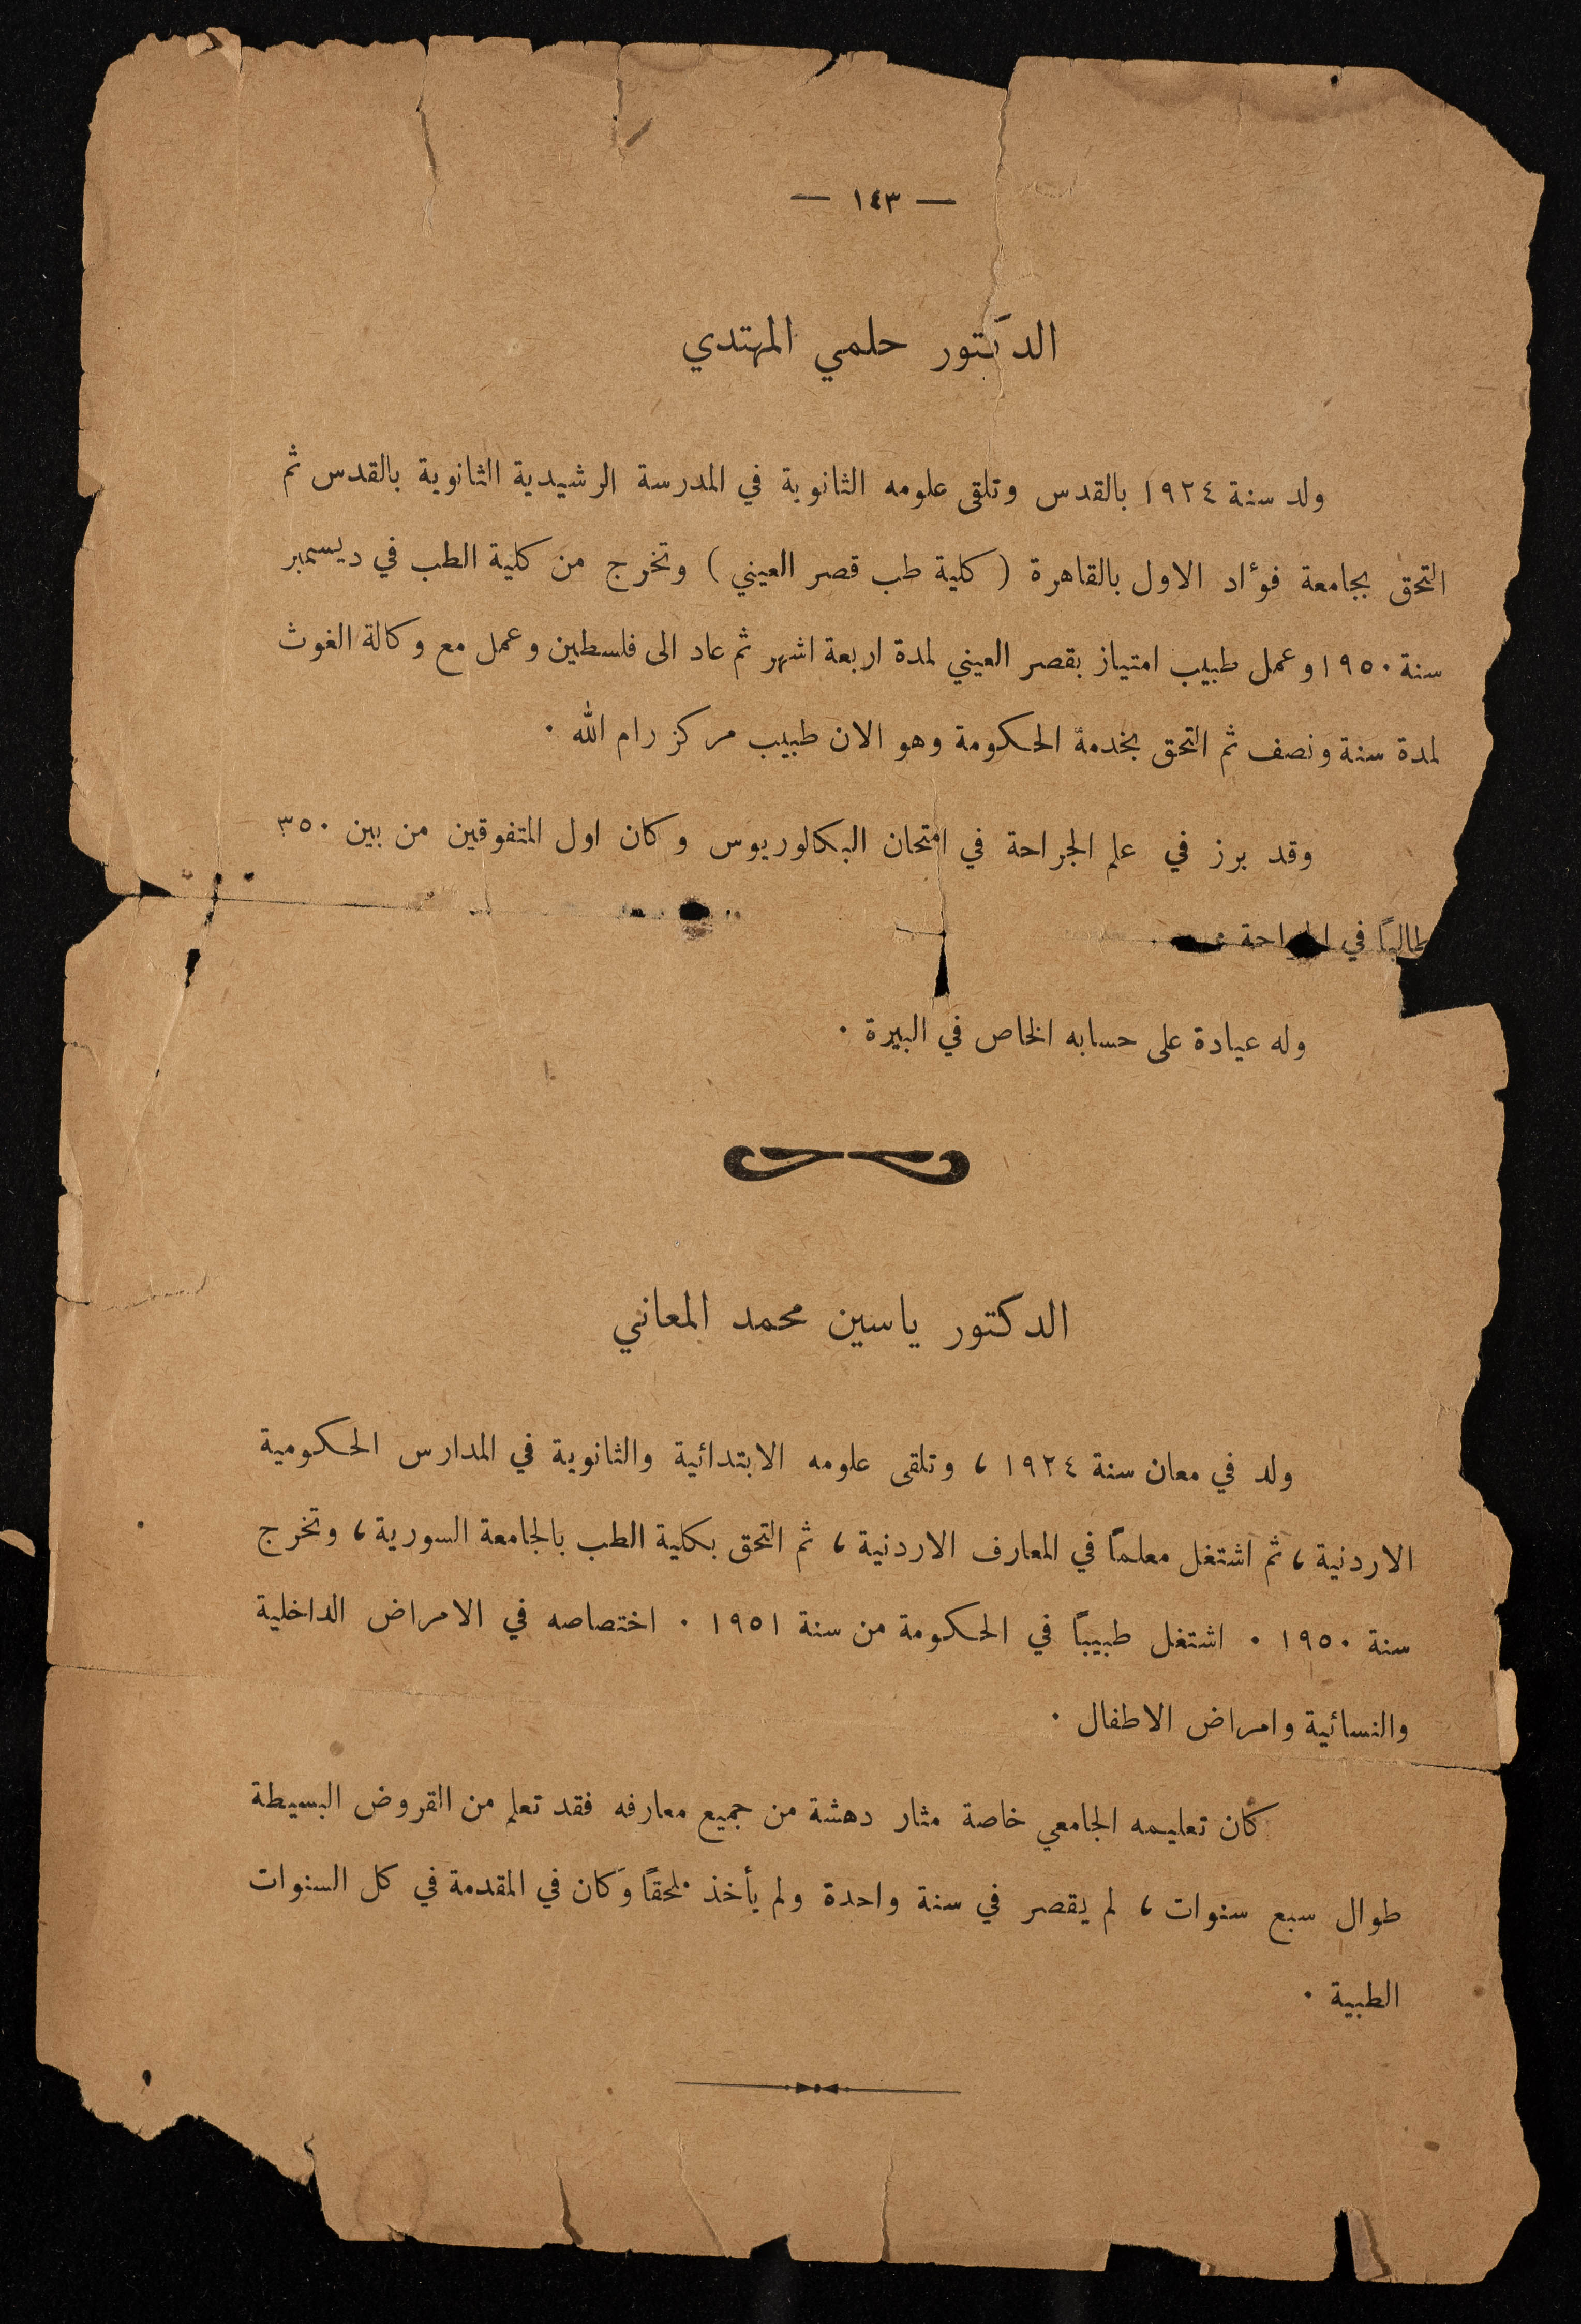 — ١٤٣ —
الدكتور حلمي المهتدي
ولد سنة ١٩٢٤ بالقدس وتلقى علومه الثانوية في المدرسة الرشيدية الثانوية بالقدس ثم
التحق بجامعة فوٴاد الاول بالقاهرة ( كلية طب قصر العيني ) وتخرج من كلية الطب في ديسمبر
سنة ١٩٥٠ وعمل طبيب امتياز بقصر العيني لمدة اربعة اشهر ثم عاد الى فلسطين وعمل مع وكالة الغوث
لمدة سنة ونصف ثم التحق بخدمة الحكومة وهو الان طبيب مركز رام الله ٠
وقد برز في علم الجراحة في امتحان البكالوريوس وكان اول المتفوقين من بين ٣٥٠
طالباً في الجراحة
وله عيادة على حسابه الخاص في البيرة ٠
الدكتور ياسين محمد المعاني
ولد في معان سنة ١٩٢٤ ، وتلقى علومه الابتدائية والثانوية في المدارس الحكومية
الاردنية ، ثم اشتغل معلماً في المعارف الاردنية ، ثم التحق بكلية الطب بالجامعة السورية ، وتخرج
سنة ١٩٥٠ ٠ اشتغل طبيباً في الحكومة من سنة ١٩٥١ ٠ اختصاصه في الامراض الداخلية
والنسائية وامراض الاطفال ٠
كان تعليمه الجامعي خاصة مثار دهشة من جميع معارفه فقد تعلم من القروض البسيطة
طوال سبع سنوات ، لم يقصر في سنة واحدة ولم يأخذ ملحقاً وكان في المقدمة في كل السنوات
الطبية ٠